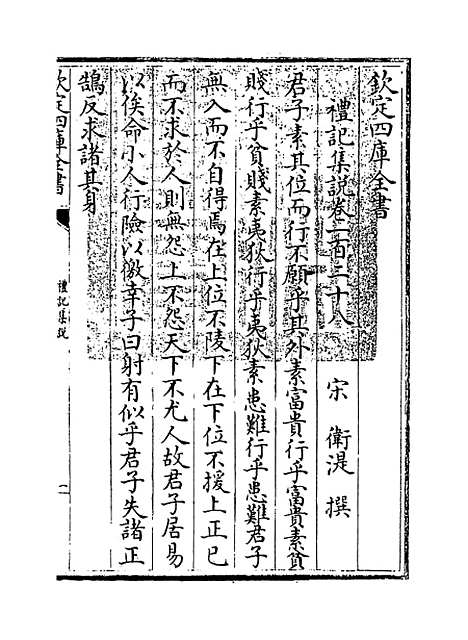 欽定四庫全書
禮記集説卷一百二十八
宋 衛湜 撰
君子素其位而行不願乎其外素富貴行乎富貴素貧
賤行乎貧賤素夷狄行乎夷狄素患難行乎患難君子
無入而不自得焉在上位不陵下在下位不援上正己
而不求於人則無怨上不怨天下不尤人故君子居易
以俟命小人行險以徼幸子曰射有似乎君子失諸正
鵠反求諸其身
欽定四庫全書
禮記集説